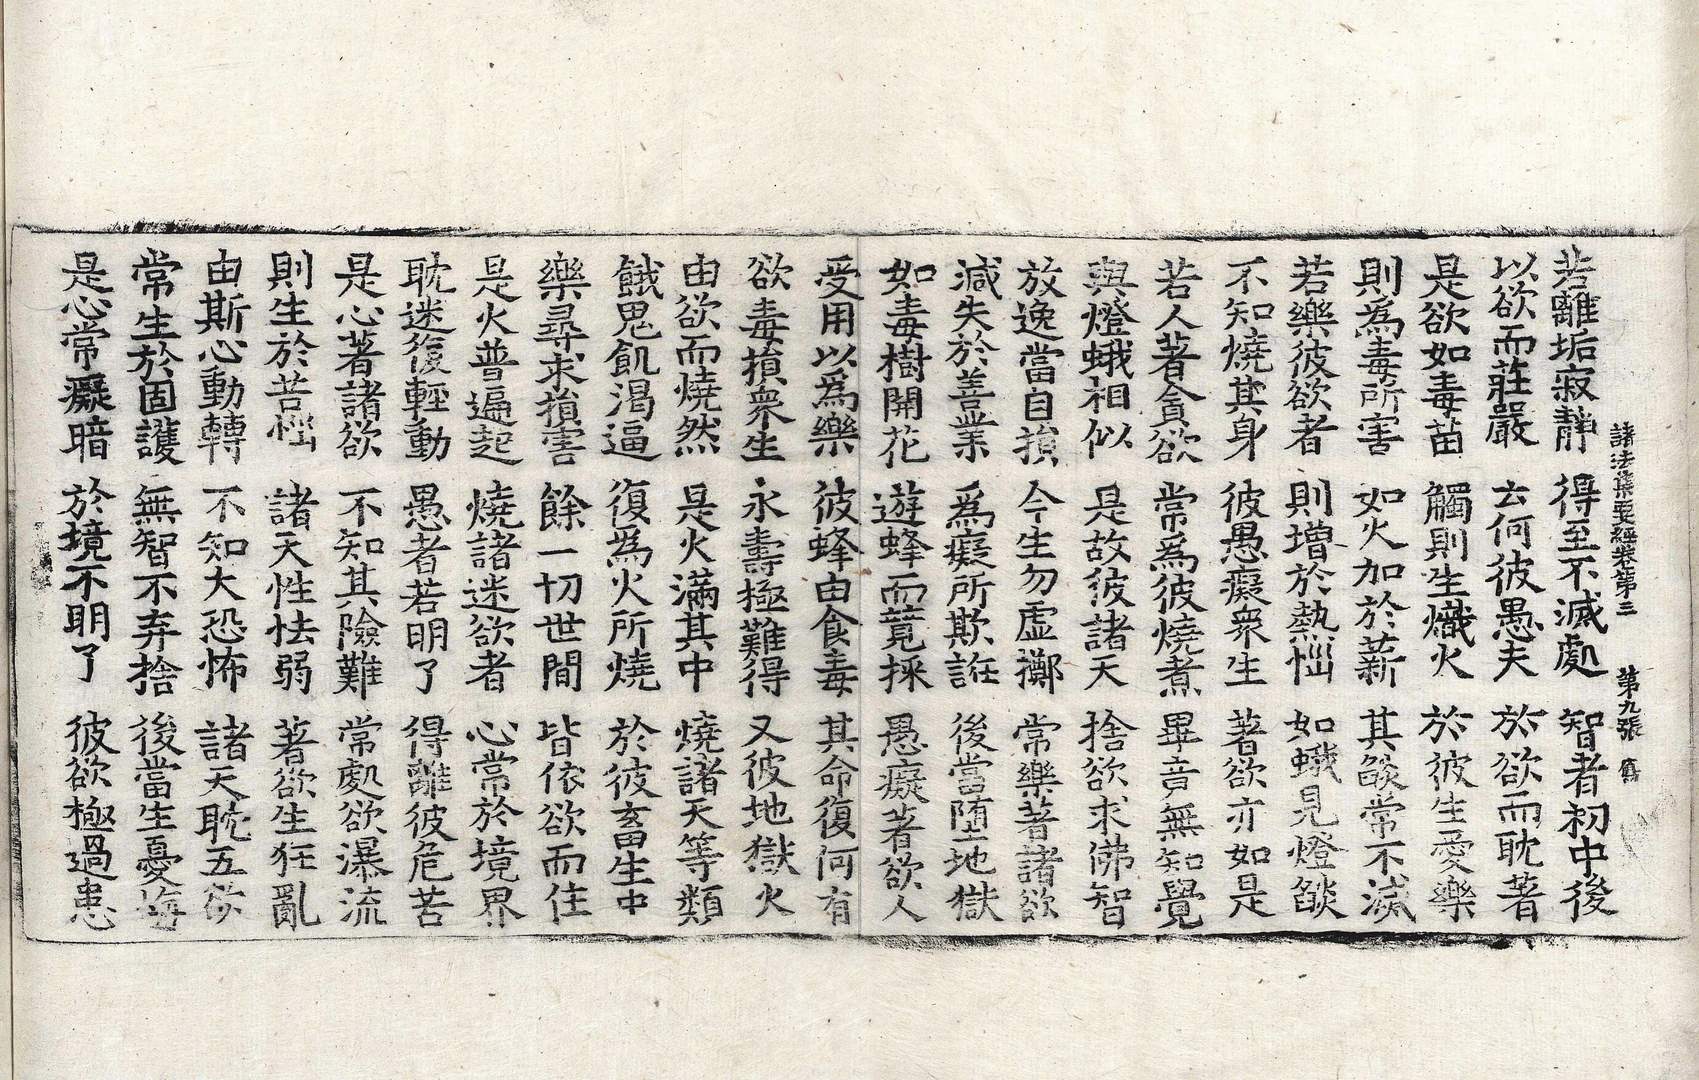 諸法集要經卷第三 第九張 寫
若離垢寂靜 得至不滅處 智者初中後
以欲而莊嚴 云何彼愚夫 於欲而耽著
是欲如毒苗 觸則生熾火 於彼生愛樂
則爲毒所害 如火加於薪 其燄常不滅
若樂彼欲者 則增於熱惱 如蛾見燈燄
不知燒其身 彼愚癡衆生 著欲亦如是
若人著貪欲 常爲彼燒煮 畢竟無知覺
與燈蛾相似 是故彼諸天 捨欲求佛智
放逸當自損 今生勿虛擲 常樂著諸欲
減失於善業 爲癡所欺誑 後當堕地獄
如毒樹開花 遊蜂而競採 愚癡著欲人
受用以爲樂 彼蜂由食毒 其命復何有
欲毒損衆生 永壽極難得 又彼地獄火
由欲而燒然 是火滿其中 燒諸天等類
餓鬼飢渴逼 復爲火所燒 於彼畜生中
樂尋求損害 餘一切世間 皆依欲而住
是火普遍起 燒諸迷欲者 心常於境界
耽迷復輕動 愚者若明了 得離彼危苦
是心著諸欲 不知其險難 常處欲瀑流
則生於苦惱 諸天性怯弱 著欲生狂亂
由斯心動轉 不知大恐怖 諸天耽五欲
常生於固護 無智不弃捨 後當生憂悔
是心常癡暗 於境不明了 彼欲極過患